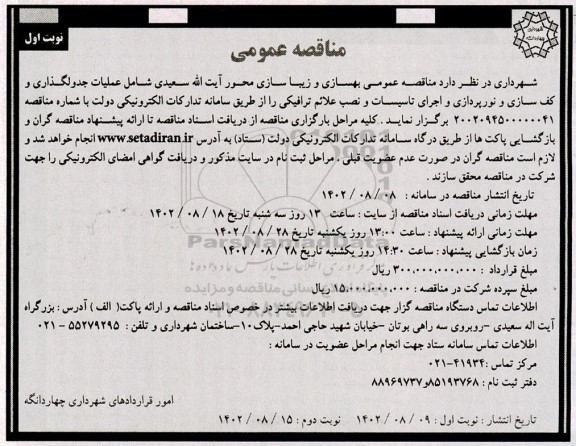 نوبت اول
شهرداری
چهاردانگه
مناقصه عمومی
شهرداری در نظر دارد مناقصه عمومی بهسازی و زیبا سازی محور آیت الله سعیدی شامل عملیات جدولگذاری و
کف سازی و نورپردازی و اجرای تاسیسات و نصب علائم ترافیکی را از طریق سامانه تدارکات الکترونیکی دولت با شماره مناقصه
۲۰۰۲۰۹۴۵۰۰۰۰۰۰۴۱ برگزار نماید . کلیه مراحل بارگزاری مناقصه از دریافت اسناد مناقصه تا ارائه پیشنهاد مناقصه گران و
بازگشایی پاکت ها از طریق درگاه سامانه تدارکات الکترونیکی دولت (ستاد) به آدرس www.setadiran.ir انجام خواهد شد و
لازم است مناقصه گران در صورت عدم عضویت قبلی ، مراحل ثبت نام در سایت مذکور و دریافت گواهی امضای الکترونیکی را جهت
شرکت در مناقصه محقق سازند .
تاریخ انتشار مناقصه در سامانه : ۰۸ / ۰۸ / ۱۴۰۲
مهلت زمانی دریافت اسناد مناقصه از سایت : ساعت ۱۳ روز سه شنبه تاریخ ۱۸ / ۰۸ / ۱۴۰۲
مهلت زمانی ارائه پیشنهاد : ساعت ۱۳:۰۰ روز یکشنبه تاریخ ۲۸ / ۰۸ / ۱۴۰۲
زمان بازگشایی پیشنهاد : ساعت ۱۴:۳۰ روز یکشنبه تاریخ ۲۸ / ۰۸ / ۱۴۰۲
ParsNamadData
مبلغ قرارداد : ۳۰۰,۰۰۰,۰۰۰,۰۰۰ ریال
مبلغ سپرده شرکت در مناقصه : ۱۵,۰۰۰,۰۰۰,۰۰۰ ریال
اطلاعات تماس دستگاه مناقصه گزار جهت دریافت اطلاعات بیشتر در خصوص اسناد مناقصه و ارائه پاکت( الف ) آدرس : بزرگراه
آیت اله سعیدی -روبروی سه راهی بوتان -خیابان شهید حاجی احمد-پلاک۱۰-ساختمان شهرداری و تلفن : ۵۵۲۷۹۲۹۵ - ۰۲۱
اطلاعات تماس سامانه ستاد جهت انجام مراحل عضویت در سامانه :
مرکز تماس :۴۱۹۳۴-۰۲۱
دفتر ثبت نام : ۸۵۱۹۳۷۶۸و۸۸۹۶۹۷۳۷
امور قراردادهای شهرداری چهاردانگه
تاریخ انتشار : نوبت اول : ۰۹ / ۰۸ / ۱۴۰۲ نوبت دوم : ۱۵ / ۰۸ / ۱۴۰۲